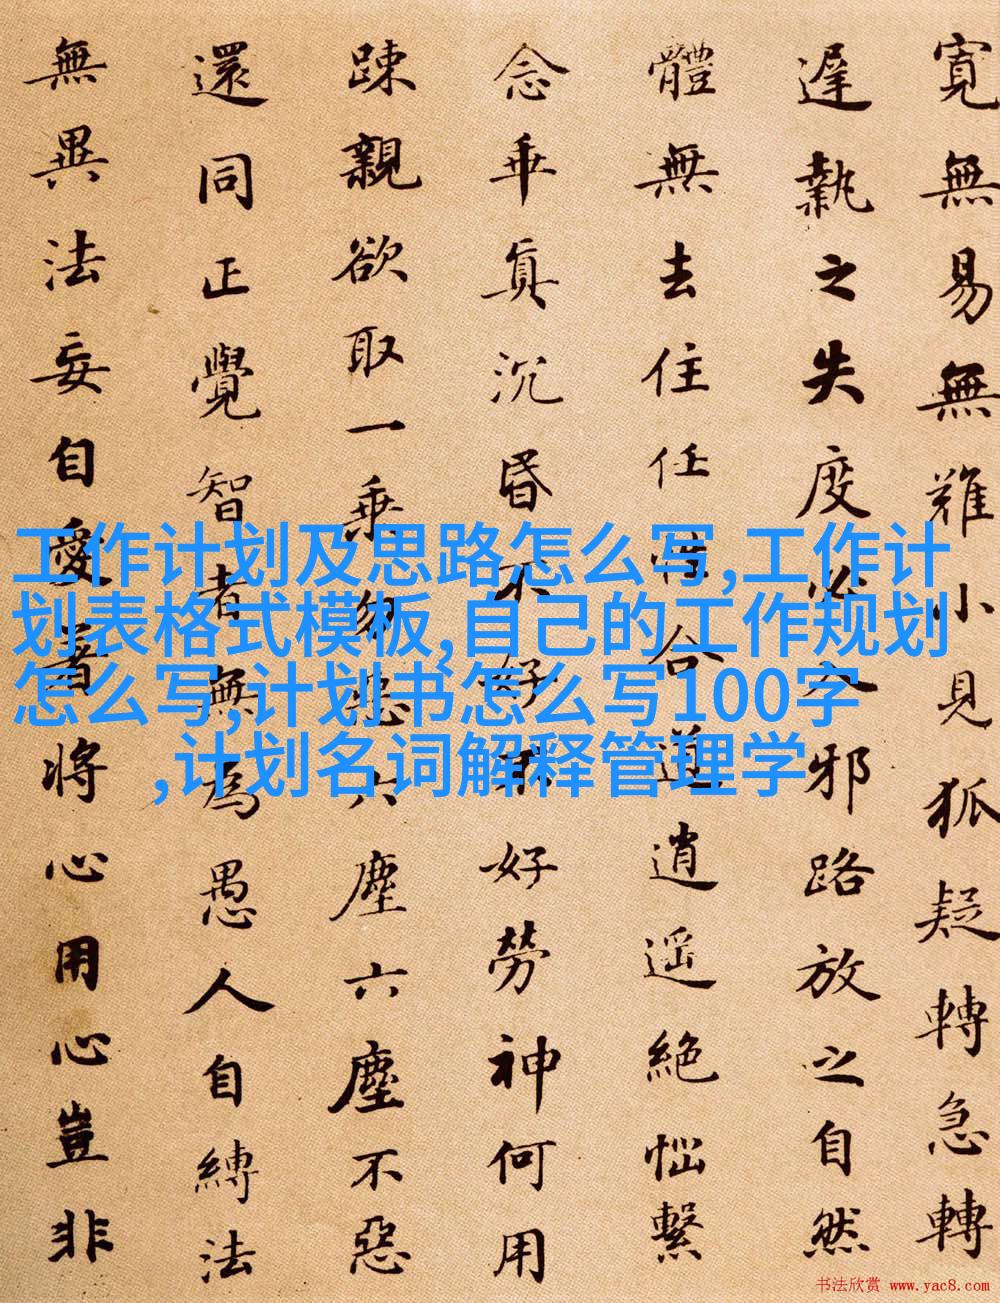 寬無易無難小見狐疑轉急轉
遲執之失度必入邪路放之自然
體無去住任性合道逍遥絶惱繫
念乖真沉昏不好好勞神何用
踈親欲取一乘勿惡六塵六塵不惡
還同正覺智者無為愚人自縛法
無異法妄自愛著將心用心豈非
工作计划及思路怎么写,工作计
划表格式模板,自己的工作规划
怎么写,计划书怎么写100字
,计划名词解释管理学
书法欣赏 www.yac8.com